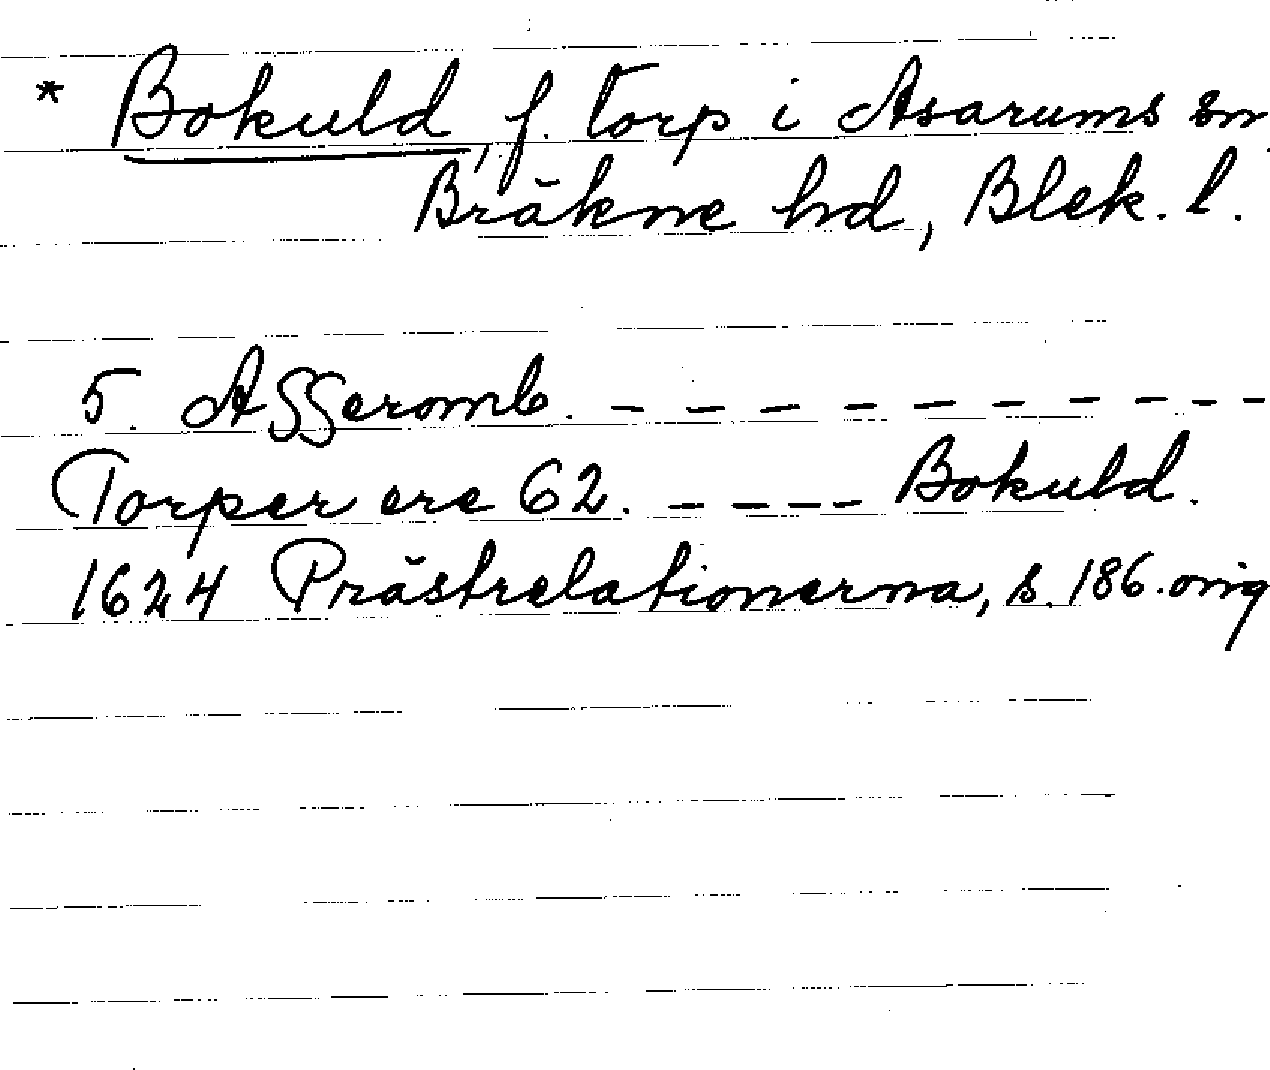 * Bokuld, f. torp i Asarums sn
Bräkne hd, Blek. l.
5. Asseromb. - - - - - - - - - -
Torper ere 62. - - - - Bokuld.
1624 Prästrelationerna, s. 186. orig